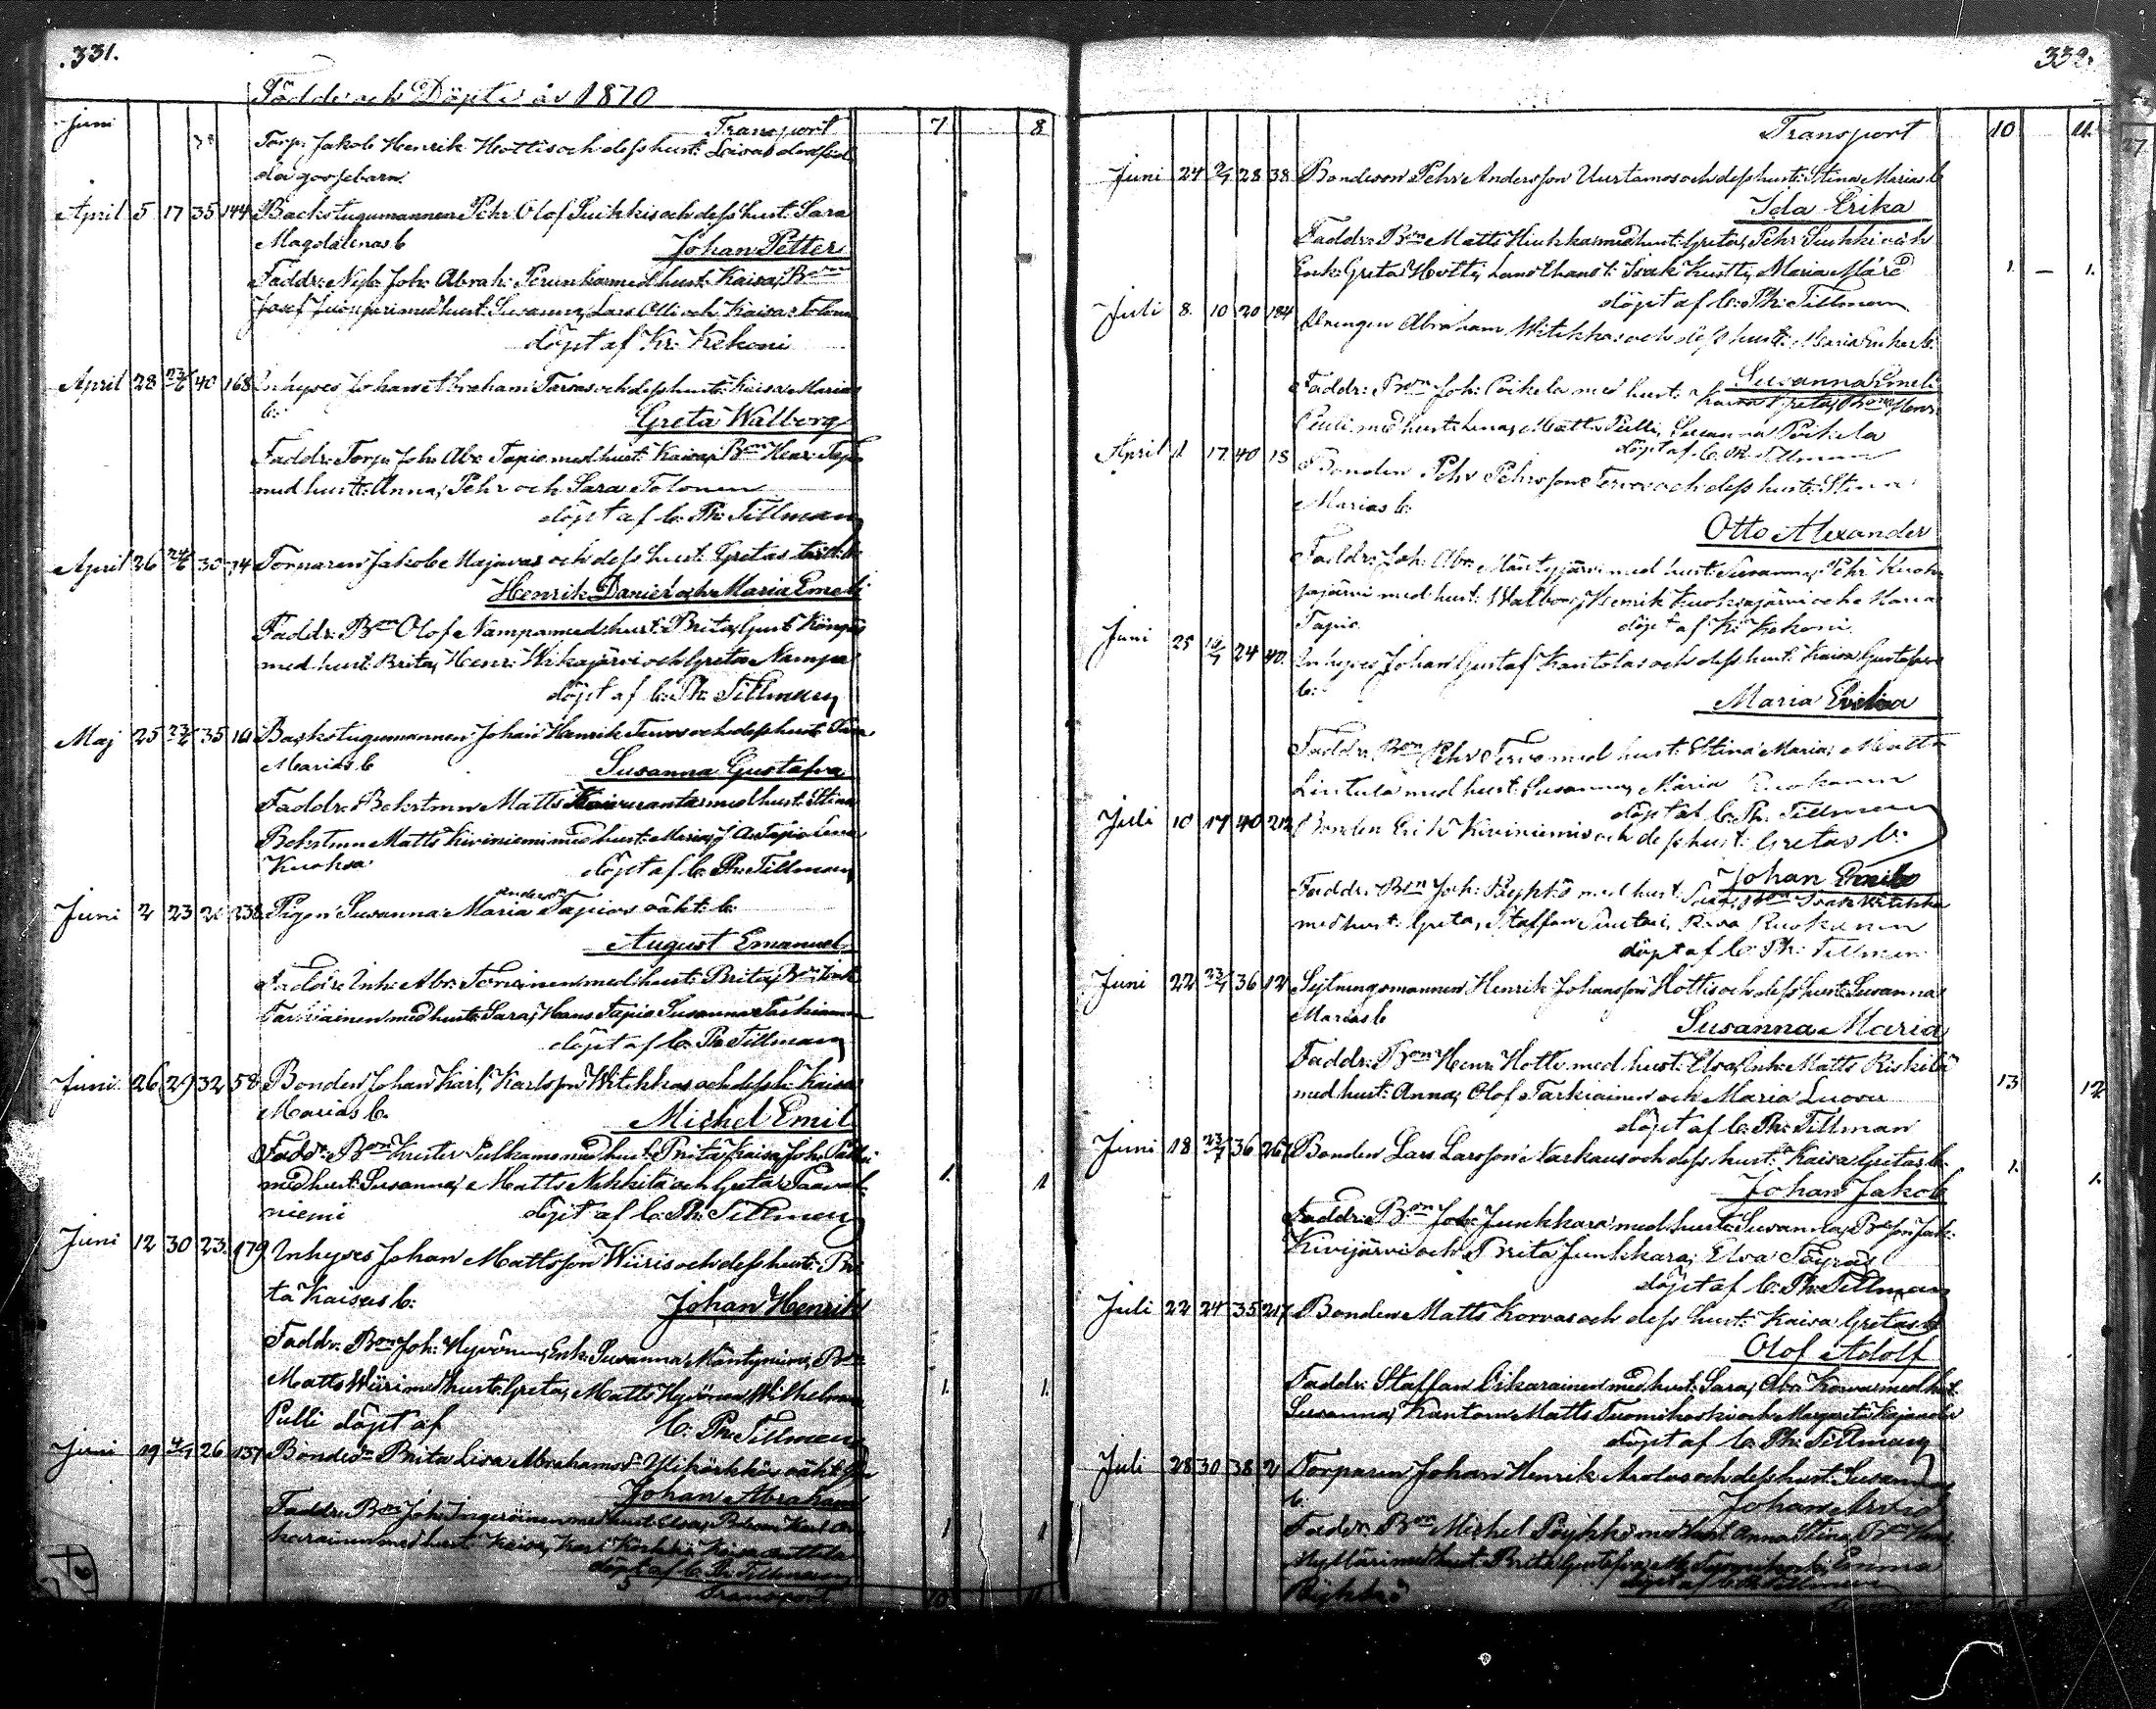 331.
Födde och Döpte år 1870
Juni
Transport 7 8
Torp. Jakob Henrik Hottis och dess hust: Lisas dödföd
da gossebarn.
April 5 17 35 144 Backstugumannen Pehr Olof Suikkis och dess hust. Sara
Magdalenas b Johan Petter
Faddr: Nyb. Joh. Abrah. Perunka med hust. Kaisa, Bon
Josef med hust. Susanna, Lars Olli och Kaisa Tolonen
döpt af Kr. Kekoni
April 28 23/6 40 168 Inhyses Johan Abraham Tarvas och dess hust: Kaisa Marias
b. Greta Walborg
Faddr: Torp. Joh. Abr. Tapio med hust. Kaisa, Bon Henr. Tapio
med hust: Anna, Pehr och Sara Tolonen
döpt af C. Ph. Tillman
April 26 24/6 30 74 Torparen Jakob Majavas och dess hust. Gretas
Henrik Daniel och Maria Emeli
Faddr: Bon Olof Nampa med hust: Brita, Gust Köngäs
med hust: Brita, Henr: Wikajärvi och Greta Nampa
döpt af C. Ph. Tillman
Maj 25 23/6 35 Backstugumannen Johan Henrik Tervos och dess hust.
Marias b Susanna Gustafva
Faddr. Bckstmn Matts med hust. Stina
Bckstmn Matts Kiviniemi med hust: Maria, J. A. Tapio Lena
Kuoksa döpt af C. Ph. Tillman
Juni 2 23 238 Pigan Susanna Maria Andersdr Tapios oäkt: b.
August Emanuel
Faddr: Inh. Abr. med hust: Brita, Bon
Tarkiainen med hust: Sara, Hans Tapio Susanna Tarkiainen
döpt af C. Ph. Tillman
Juni 26 29 32 58 Bonden Johan Karl Karlsson Witikkas och dess h. Kaisa
Marias b. Michel Emil
Faddr: Bon Krister Pulkamo med hust. Brita Kaisa, Joh.
med hust: Susanna, Matts Nikkilä och Greta Saavel
niemi döpt af C. Ph. Tillman 1. 1
Juni 12 30 23. 179 Inhyses Johan Mattsson Wiiris och dess hust: Bri
ta Kaisas b: Johan Henrik
Faddr. Bon Joh: Hyvönen, Enk. Susanna Mäntyniemi, Bon
Matts Wiiri med hust: Greta, Matts Hyvönen, Wilhelmina
Pulli döpt af C. Ph. Tillman 1. 1.
Juni 19 4/7 26 137 Bondedr Brita Lisa Abrahamsdr Ylikörkkös oäkt
Johan Abraham
Faddr: Bon Joh. Ingeröinen med hust. Elsa, Karl Oi
karainen med hust: Kaisa, Karl Körkkö Kaisa Anttila 1 1
döpt af C. Ph. Tillman
Transport 10 11
332.
Transport 10 11.
Juni 24 9/7 28 38 Bondeson Pehr Andersson Uurtamos och dess hust: Stina Marias b
Ida Erika
Faddr: Bon Matts Hiukka med hust: Greta, Pehr Suikki och
Enk: Greta Hotti, Landthandl: Isak Kustti, Maria Märd 1. — 1.
döpt af C. Ph. Tillman
Juli 8. 10 20 184 Drengen Abraham Witikkas och dess hust: Maria b.
Susanna Emeli
Faddr: Bon Joh: Poikela med hust: Kaisa Greta, Bon Henr.
Pulli med hust. Lena, Matts Pulli, Susanna Poikela
döpt af C. Ph. Tillman
April 11 17 40 18 Bonden Pehr Pehrsson Tervos och dess hust: Stina
Marias b:
Otto Alexander
Faddr: Joh. Abr. Mäntyjärvi med hust: Susanna, Pehr Kuok
sajärvi med hust. Walborg, Henrik Kuoksajärvi och Maria
Tapio. döpt af Kr. Kekoni
Juni 25 10/7 24 40. Inhyses Johan Gustaf Kantolas och dess hust: Kaisa Gustafvas
b: Maria Evelina
Faddr: Bon Pehr Tervo med hust: Stina Maria, Matts
Lintula med hust: Susanna, Maria Ruokanen
döpt af C. Ph. Tillman
Juli 10 17 40 212 Bonden Erik Kiviniemis och dess hust: Gretas b:
Johan Emil
Faddr: Bon Joh: Pöykkö med hust: Sara, Bon Isak Witikka
med hust: Greta, Staffan, Kaisa Ruokanen
döpt af C. Ph: Tillman
Juni 22 23/7 36 12 Sytningsmannen Henrik Johansson Hottis och dess hust: Susanna
Marias b Susanna Maria
Faddr: Bon Henr Hotti med hust: Elsa, Inh. Matts Riskilä
med hust: Anna, Olof Tarkiainen och Maria Luova 13 12
döpt af C. Ph: Tillman
Juni 18 23/7 36 267 Bonden Lars Larsson Narkaus och dess hust: Kaisa Gretas b. 1. 1.
Johan Jakob
Faddr: Bon Joh. Junkkara med hust: Susanna, Bonson Jak:
Kivijärvi och Brita Junkkara, Elsa Töyräs
döpt af C. Ph. Tillman
Juli 22 24 35 217 Bonden Matts Korvas och dess hust: Kaisa Gretas b
Olof Adolf
Faddr: Staffan Oikarainen med hust: Sara, Abr. Korva med hust.
Susanna, Kantorn Matts Tuomikoski och Margareta Kajanoja
döpt af C. Ph. Tillman
Juli 28 30 38 2 Torparen Johan Henrik Arolas och dess hust: Susannas
b. Johan Arvid
Faddr: Bon Michel Pöykkö med hust Anna Stina, Bon Henr.
Mylläri med hust Brita Gustafva, M. Tuomikoski, Emma
Pöykkö döpt af C. Ph. Tillman